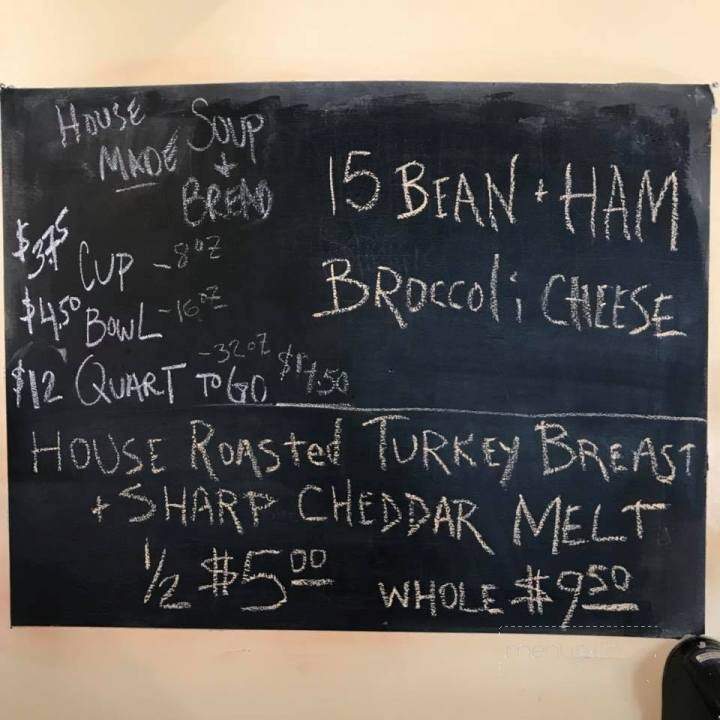 HOUSE MADE SOUP + BREAD
$3.75 CUP - 8oz
$4.50 BOWL - 16oz
$12 QUART TO GO - 32oz
15 BEAN + HAM
BROCCOLi CHEESE
HOUSE RoAsted TURKEY BREAST
+ SHARP CHEDDAR MELT
1/2 $5.00 WHOLE $9.50